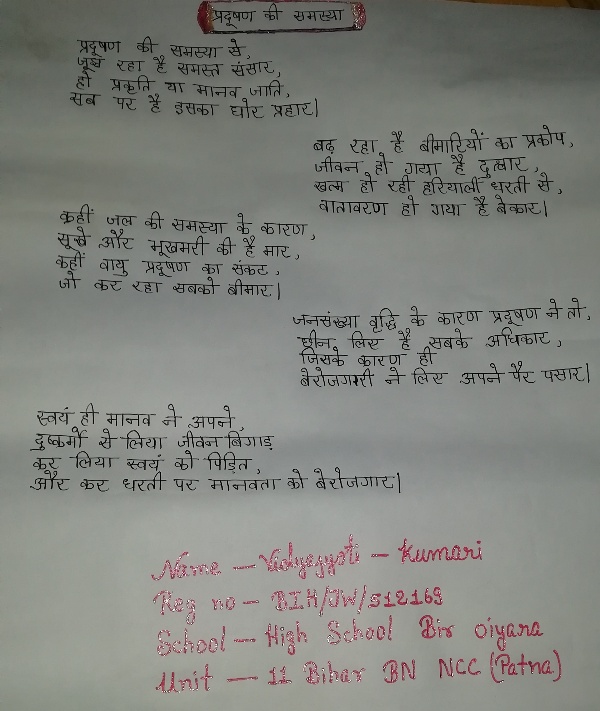 प्रदूषण की समस्या
प्रदूषण की समस्या से,
जूझ रहा है समस्त संसार,
हो प्रकृति या मानव जाति,
सब पर है इसका घोर प्रहार।
बढ़ रहा है बीमारियों का प्रकोप,
जीवन हो गया है दुत्वार,
खत्म हो रही हरियाली धरती से,
वातावरण हो गया है बेकार।
कहीं जल की समस्या के कारण,
सूखे और भूखमरी की है मार,
कहीं वायु प्रदूषण का संकट,
जो कर रहा सबको बीमार।
जनसंख्या वृद्धि के कारण प्रदूषण ने तो,
छीन लिए है सबके अधिकार,
जिसके कारण ही
बेरोजगारी ने लिए अपने पैर पसार।
स्वयं ही मानव ने अपने,
दुष्कर्मो से लिया जीवन बिगाड़
कर लिया स्वयं को पिड़ित,
और कर धरती पर मानवता को बेरोजगार।
Name - Vidyajyoti - Kumari
Reg no - BIH/JW/512169
School - High School Bir oiyara
Unit - 11 Bihar BN NCC (Patna)